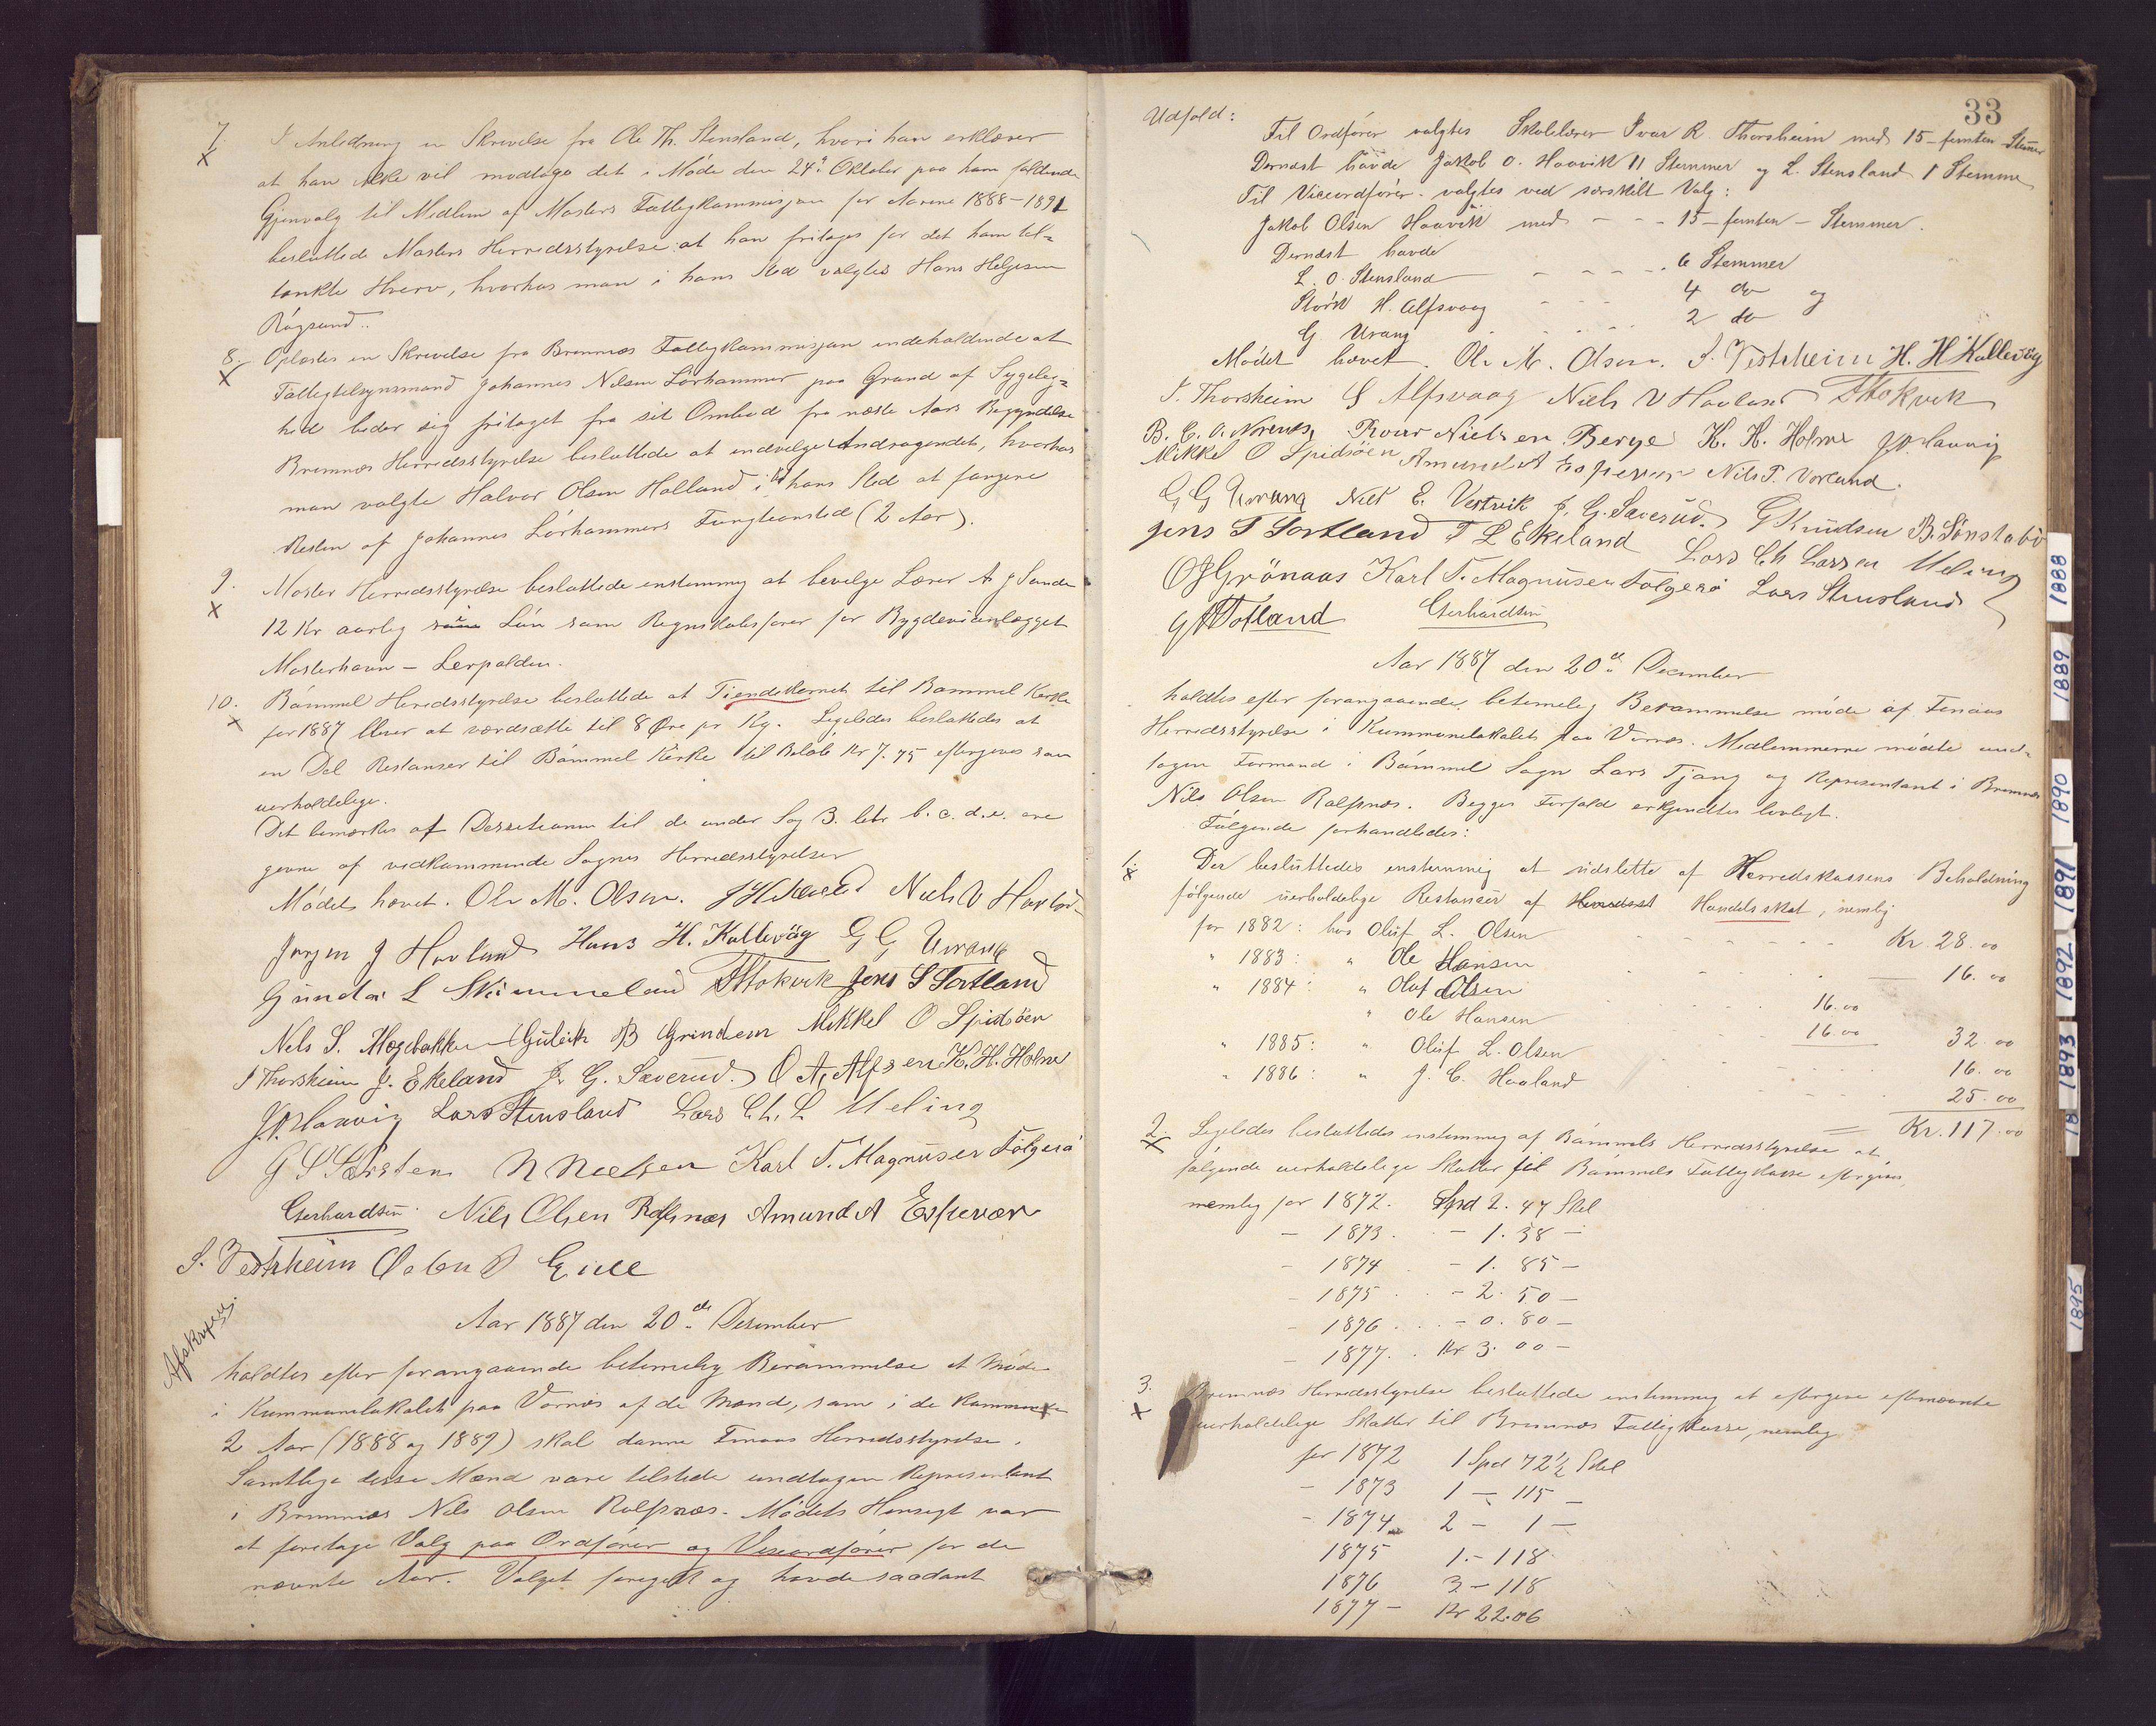 7. I Anledning en Skrivelse fra Ole Th. Stensland, hvori han erklærer
x
at han ikke vil modtage det i Møde den 24de Oktober paa ham faldende
Gjenvalg til Medlem af Mosters Fattigkommisjon for Aarene 1888-1891
besluttede Mosters Herredsstyrelse: at han fritages for det ham til=
tænkte Hverv, hvorhos man i hans Sted valgtes Hans Helgesen
Røgsund.
8. Oplæstes en Skrivelse fra Bremnæs Fattigkommisjon indeholdende at
x
Fattigtilsynsmand Johannes Nilsen Lørhammer paa Grund af Sygelig=
hed beder sig fritaget fra sit Ombud fra næste Aars Begyndelse
Bremnæs Herredsstyrelse besluttede at indvilge Andragendet, hvorhos
man valgte Halvor Olsen Holland i hans Sted at fungere
Resten af Johannes Lørhammers Funktionstid (2 Aar).
9. Moster Herredsstyrelse besluttede enstemmig at bevilge Lærer A. J Sande
x
12 Kr aarlig Løn som Regnskabsfører for Bygdeveianlægget
Mosterhavn - Lerpolden.
10. Bømmel Herredsstyrelse besluttede at Tiendekornet til Bømmel Kirke
x
for 1887 bliver at værdsætte til 8 Øre pr Kg. Ligeledes besluttedes at
en Del Restanser til Bømmel Kirke til Beløb Kr 7.75 eftergives som
uerholdelige.
Det bemærkes af Desisionerne til de under Sag 3. litr b. c. d. e. ere
givne af vedkommende Sognes Herredsstyrelser
Mødet hævet. Ole M. Olsen. Niels V Havlas
Jørgen J Hovland Hans H. Kallevåg G G Urrang
Gunder L Skimmeland T Stokvik Jens S Tortland
Nels S. Mogebakke Guleik B Grindem Mikkel O Spidsöen
I Thorsheim J. Ekeland J. G. Sæverud. O A, Alfsen K. H. Holme
J. O. Haavig Lars Stensland Lars Ch. L Meling
G S N Nielsen Karl T. Magnusen Folgerø
Gerhardsen Nils Olsen Rolfsnæs Amund A Espevær
S. Vestrheim
Aar 1887 den 20de Desember
Afskrevet.
holdtes efter forangaaende betimelig Berammelse et Møde
i Kommunelokalet paa Vornæs af de Mænd, som i de kommende
2 Aar (1888 og 1889) skal danne Finaas Herredsstyrelse.
Samtlige disse Mænd vare tilstede undtagen Repræsentant
i Bremnæs Nils Olsen Rolfsnæs. Mødets Hensigt var
at foretage Valg paa Ordfører og Viceordfører for de
nævnte Aar. Valget foregik og havde saadant
33
Udfald:
Til Ordfører valgtes Skolelærer Ivar R. Thorsheim med 15 - femten Stemmer
Dernæst havde Jakob O. Haavik 11 Stemmer og L. Stensland 1 Stemme
Til Viceordfører valgtes ved særskilt Valg:
Jakob Olsen Haavik med - - - 15 - femten - Stemmer.
Dernæst havde
L. O. Stensland - - - - 6 Stemmer
Størk H. Alfsvaag - - - 4 do og
G Urang - - - - 2 do
Mødet hævet. Ole M. Olsen. S. Vestrheim H. H Kallevåg
I. Thorsheim S Alfsvaag Niels V Havlas T Stokvik
B. C. A. Nornes, Roar Nielsen Berge K. H. Holme J. O. Haavig
Mikkel O Spidsöen Amund A Espevær Nils T. Vorland.
G G Urrang Nils E. Vestvik J. G. Sæverud. G Knudsen B. Sønstabø
Jens S Tortland T L Ekeland Lars Ch Larsen Meling
O J Grönaas Karl T. Magnusen Folgerø Lars Stensland
G A Totland Gerhardsen
Aar 1887 den 20de December
holdtes efter forangaaende, betimelig Berammelse møde af Finaas
Herredsstyrelse i Kommunelokalet paa Vornæs. Medlemmerne mødte und=
tagen Formand i Bømmel Sogn Lars Tjong og Repræsentant i Bremnæs
Nils Olsen Rolfsnæs. Begges Forfald erkjendtes lovligt.
Følgende forhandledes:
1. Der besluttedes enstemmig at udslette af Herredskassens Beholdning
x
følgende uerholdelige Restanser af Handelsskat, nemlig
for 1882: hos Oluf L. Olsen - - - - - - Kr. 28.00
" 1883: " Ole Hansen - - - 16.00
" 1884: " Oluf Olsen - - - 16.00
" Ole Hansen - - - 16.00 32.00
" 1885: " Oluf L. Olsen - - - 16.00
" 1886: " J. C. Haaland - - - 25.00
Kr. 117.00
2. Ligeledes besluttedes enstemmig af Bømmels Herredsstyrelse at
x
følgende uerholdelige Skatter til Bømmels Fattigkasse eftergives,
nemlig for 1872. Spd 2. 47 Skil
- 1873. - 1. 38 -
- 1874 . - 1. 85 -
- 1875 . . - 2. 50 -
- 1876 . . . - 0. 80 -
- 1877. . Kr 3. 00 -
3. Bremnæs Herredsstyrelse besluttede enstemmig at eftergive efternævnte
x
uerholdelige Skatter til Bremnæs Fattigkasse, nemlig
for 1872 1 Spd 72½ Skil
- 1873 1 - 115 -
- 1874 2 - 1 -
1875 1 - 118
1876 3 - 118
1877 - Kr 22.06
1888
1889
1890
1891
1892
1893
18
1895